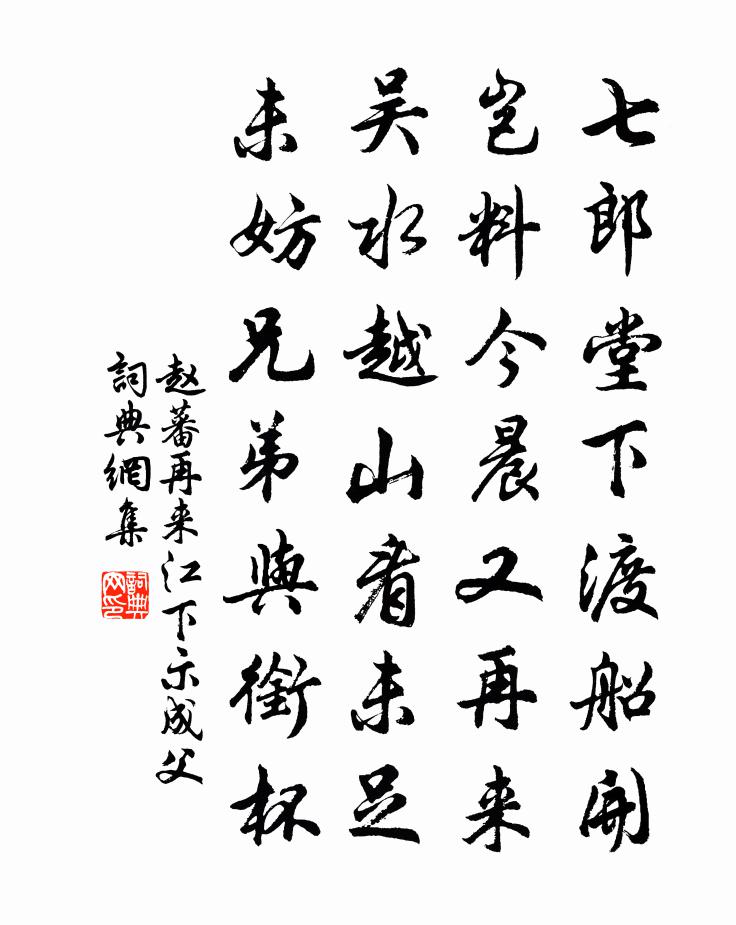 七郎堂下渡船開
岂料今晨又再来
吴水越山看未足
未妨兄弟與銜杯
赵蕃再来江下示成父
詞典網集
詞典网印